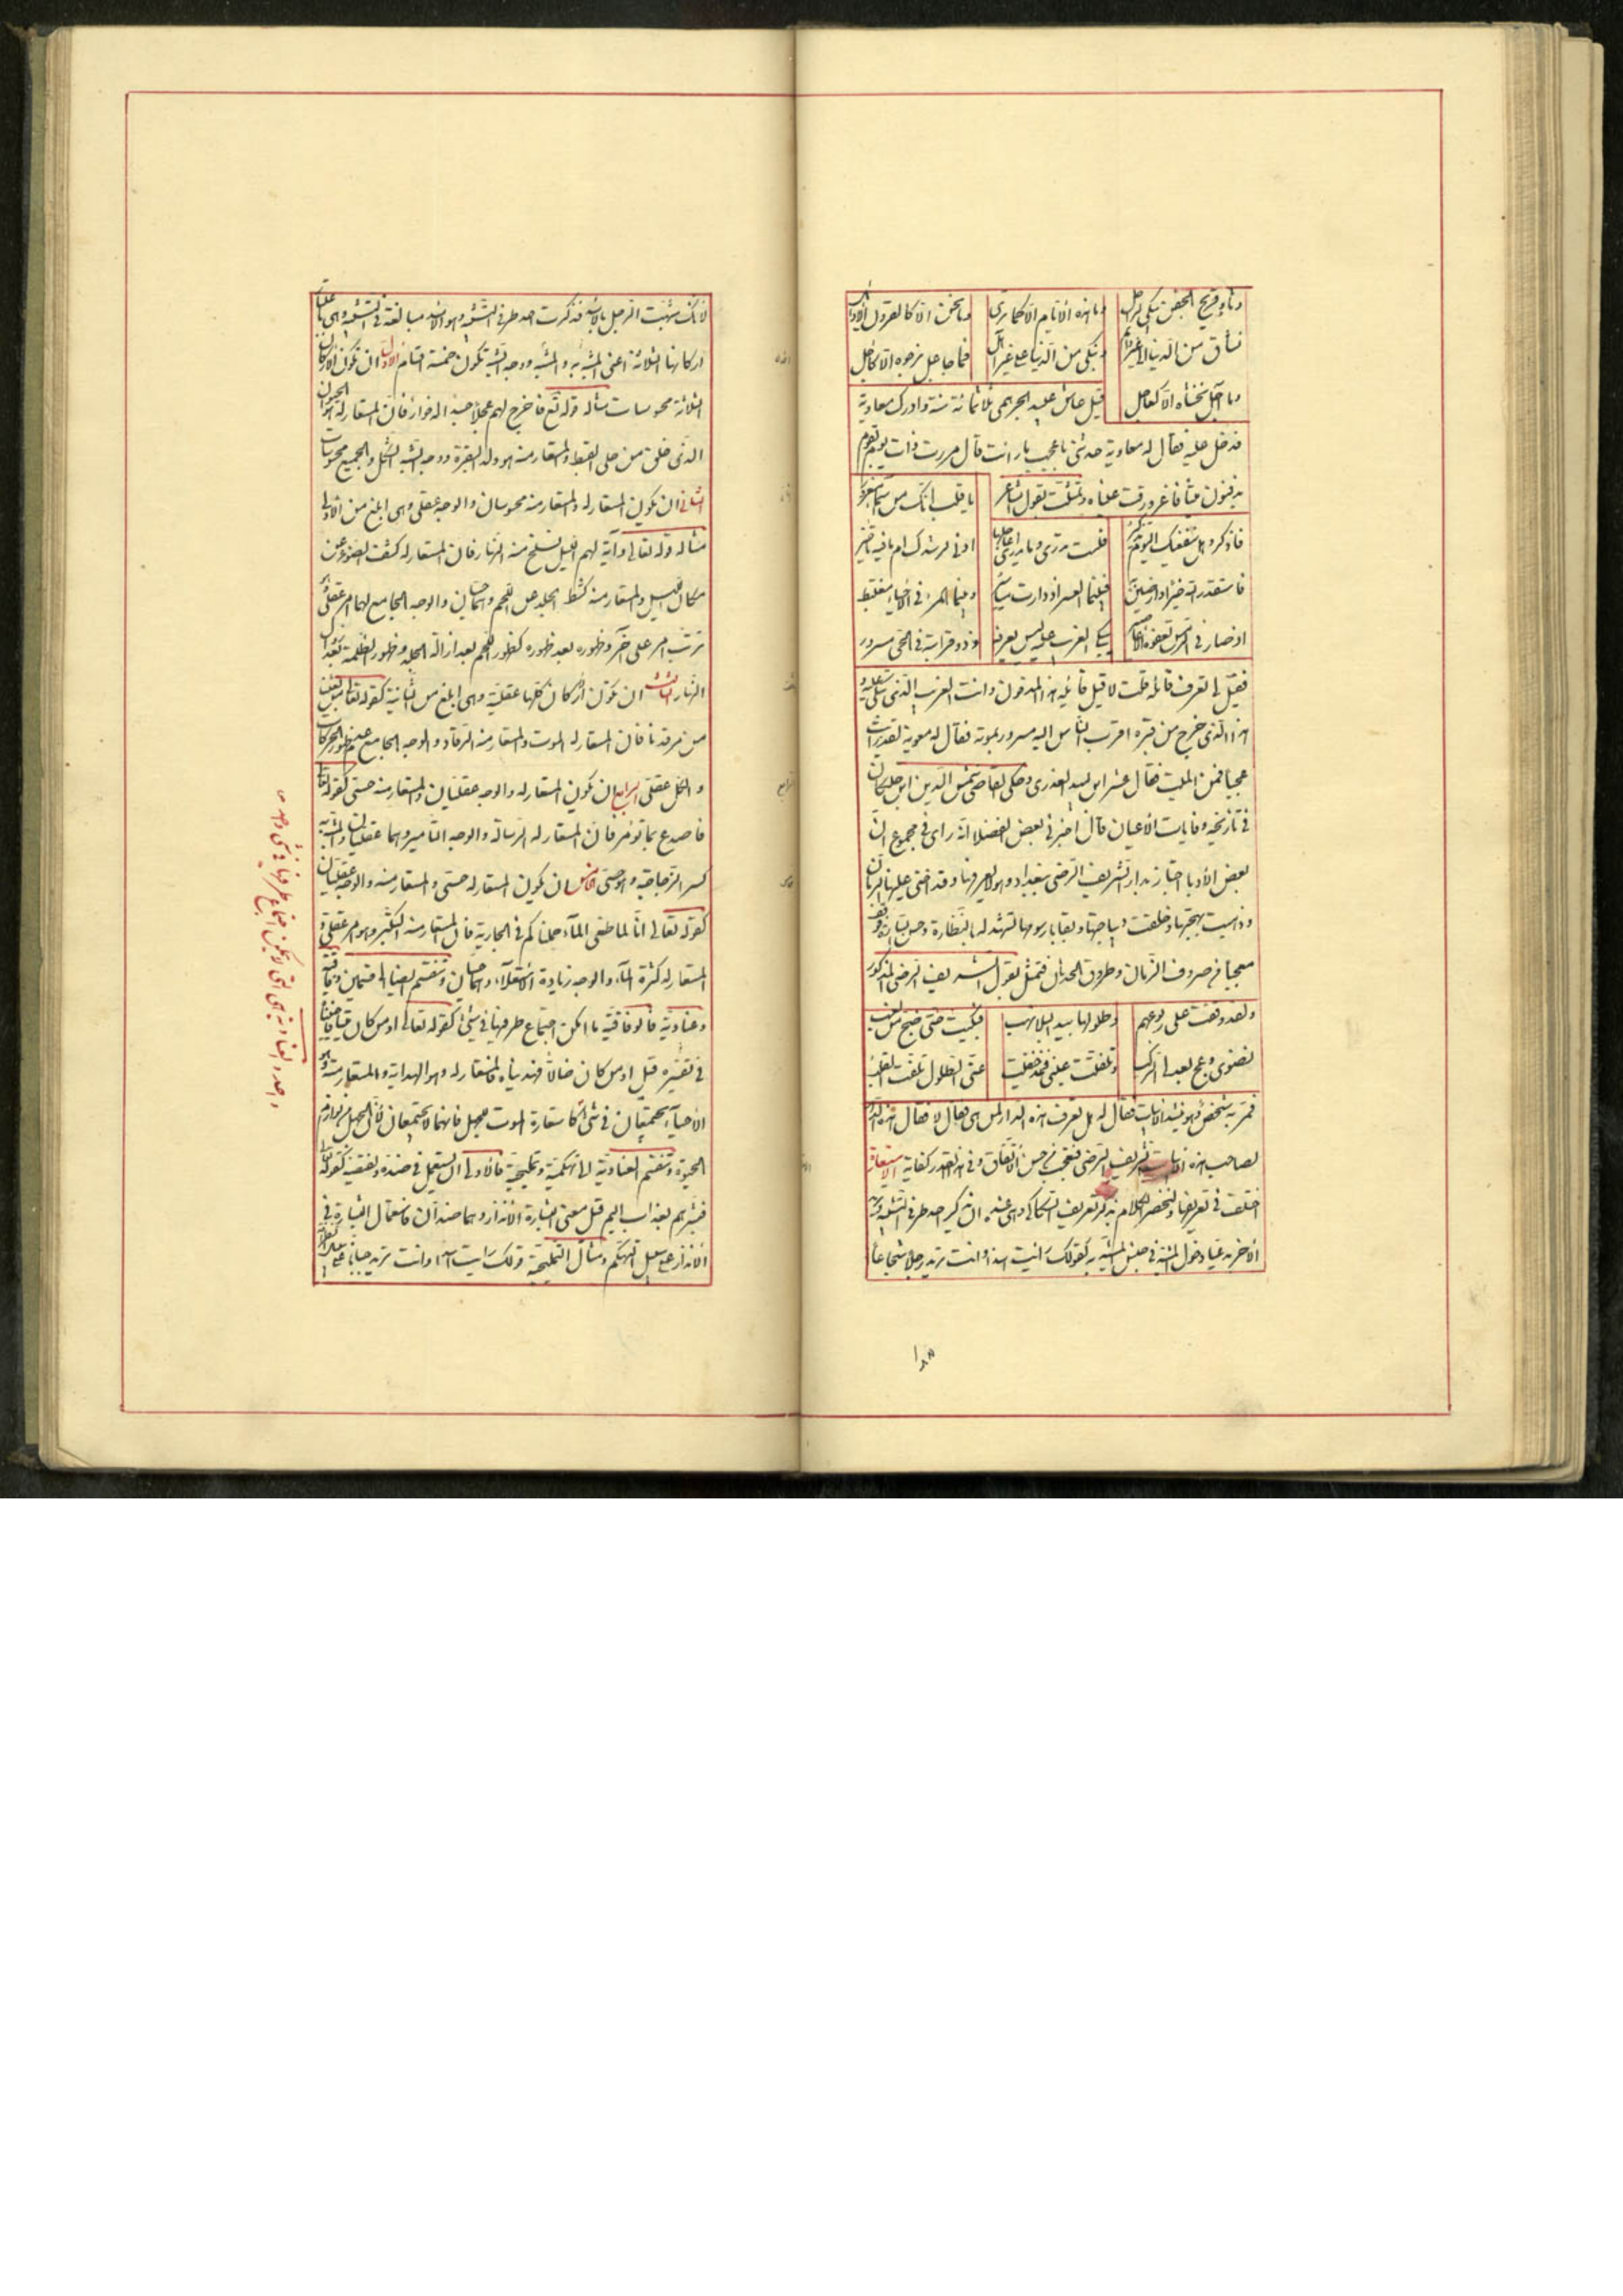 وما هذه الأيام الا كما ترى
وما نحن الا كالقرون الأوائل
نساق من الدنيا الى غير دائم
ونبكي من الدنيا على غير طائل
فما عاجل نرجوه الا كآجل
وما آجل نخشاه الا كعاجل
قيل عاش عبيد الجرهمى ثلاثمائة سنة وادرك معاوية
فدخل عليه فقال له معاوية حدثني باعجب ما رأيت قال مررت ذات يوم بقوم
يدفنون ميتا فاغرورقت عيناه وتمثلت بقول الشاعر
يا قلب انك من اسماء مغرور
فاذكر وهل ينفعنك اليوم تذكير
فلست تدري وما تدري أعاجلها
ادنى لرشدك ام ما فيه تأخير
فاستقدر الله خيرا وارضين به
فبينما العسر اذ دارت مياسير
وبينما المرء في الأحياء مغتبط
اذ صار في الرمس تعفوه الاعاصير
يبكي الغريب عليه ليس يعرفه
وذو قرابته في الحى مسرور
فقيل لي اتعرف قائله قلت لا قيل قائله هذا المدفون وانت الغريب الذى تبكى عليه و
هذا الذى خرج من قبره اقرب الناس اليه مسرور بموته فقال له معوية لقد رأيت
عجبا فمن الميت فقال عثير ابن لبيد العذرى وحكى القاضى شمس الدين ابن خلكان
فى تاريخه وفايات الأعيان قال اخبرنى بعض الفضلا انه راى في مجموع ان
بعض الأدبا اجتاز بدار الشريف الرضى ببغداد وهو لا يعرفها وقد اخنى عليها الزمان
وذهبت بهجتها وخلقت ديباجتها وبقايا رسومها تشهد لها بالنظارة وحسن الشارة فوقف
متعجبا من صروف الزمان وطروق الحدثان فتمثل بقول الشريف الرضى المذكور
ولقد وقفت على ربوعهم
وطلولها بيد البلا نهب
فبكيت حتى ضج من لغب
نضوى وعج بعدلى الركب
وتلفتت عينى فمذ خفيت
عنى الطلول تلفت القلب
فمر به شخص وهو ينشد الابيات فقال له هل تعرف هذه الدار لمن هى فقال لا فقال هذه الدار
لصاحب هذه الابيات الشريف الرضى فتعجب من حسن الاتفاق وفي هذا القدر كفاية الاستعارة
اختلفت فى تعريفها ولنختصر الكلام بذكر تعريف السكاكى وهى عنده ان تذكير احد طرفى التشبيه وتريد به
الآخر مدعيا دخول المشبه فى جنس المشبه به كقولك رأيت اسدا وانت تريد رجلا شجاعا
١٨٨
لأنك شبهت الرجل بالأسد فذكرت احد طرفى التشبيه وهو الاسد مبالغة فى التشبيه وهى باعتبار
اركانها الثلاثة اعنى المشبه به والمشبه ووجه الشبه تكون خمسة اقسام الاول ان تكون الأركان
الثلاثة محسوسات مثاله قوله تع فاخرج لهم عجلا جسدا له خوار فان المستعار له الحيوان
الذى خلق من حلى القبط والمستعار منه هو ولد البقرة ووجه الشبه الشكل والجميع محسوسات
الثانى ان يكون المستعار له والمستعار منه محسوسان والوجه عقلى وهى ابلغ من الاولى
مثاله قوله تعالى وآية لهم الليل نسلخ منه النهار فان المستعار له كشف الضوء عن
مكان الليل والمستعار منه كشط الجلد عن اللحم وهما حسيان والوجه الجامع لهما امر عقلى وهو
ترتب امر على آخر وظهوره بعد ظهوره كظهور اللحم بعد ازالة الجلد وظهور الظلمة بعد زوال
النهار الثالث ان تكون اركان كلها عقلية وهى ابلغ من الثانية كقوله تعالى من بعثنا
من مرقدنا فان المستعار له الموت والمستعار منه الرقاد والوجه الجامع عدم ظهور الحركات
والكل عقلى الرابع ان يكون المستعار له والوجه عقليان والمستعار منه حسى كقوله تعالى
فاصدع بما تؤمر فان المستعار له الرسالة والوجه التأثير وهما عقليان والمشبه به
كسر الزجاجة وهو حسى الخامس ان يكون المستعار له حسى والمستعار منه والوجه عقليان
كقوله تعالى انا لما طغى الماء حملناكم فى الجارية فان المستعار منه التكبر وهو امر عقلى و
المستعار له كثرة الماء والوجه زيادة الاستعلاء وهما حسيان وتنقسم ايضا الى قسمين وفاقية
وعنادية فالوفاقية ما امكن اجتماع طرفيها فى شئ كقوله تعالى اومن كان ميتا فاحييناه
فى تفسيره قيل اومن كان ضالا فهديناه فالمستعار له وهو الهداية والمستعار منه وهو
الأحياء يجتمعان فى شئ كاستعارة الموت للجهل فانهما لا يجتمعان لأن الجهل من لوازم
الحيوة وتنقسم العنادية الى تهكمية وتمليحية فالأولى ان يستعمل فى ضده ونقيضه كقوله تعالى
فبشرهم بعذاب اليم قيل معنى البشارة الانذار وهما ضدان فاستعمال البشارة فى
الأنذار على سبيل التهكم ومثال التمليحية قولك رأيت اسدا وانت تريد جبانا على
واحدة العنادية هى التى لا يمكن اجتماع طرفيها فى شئ واحد